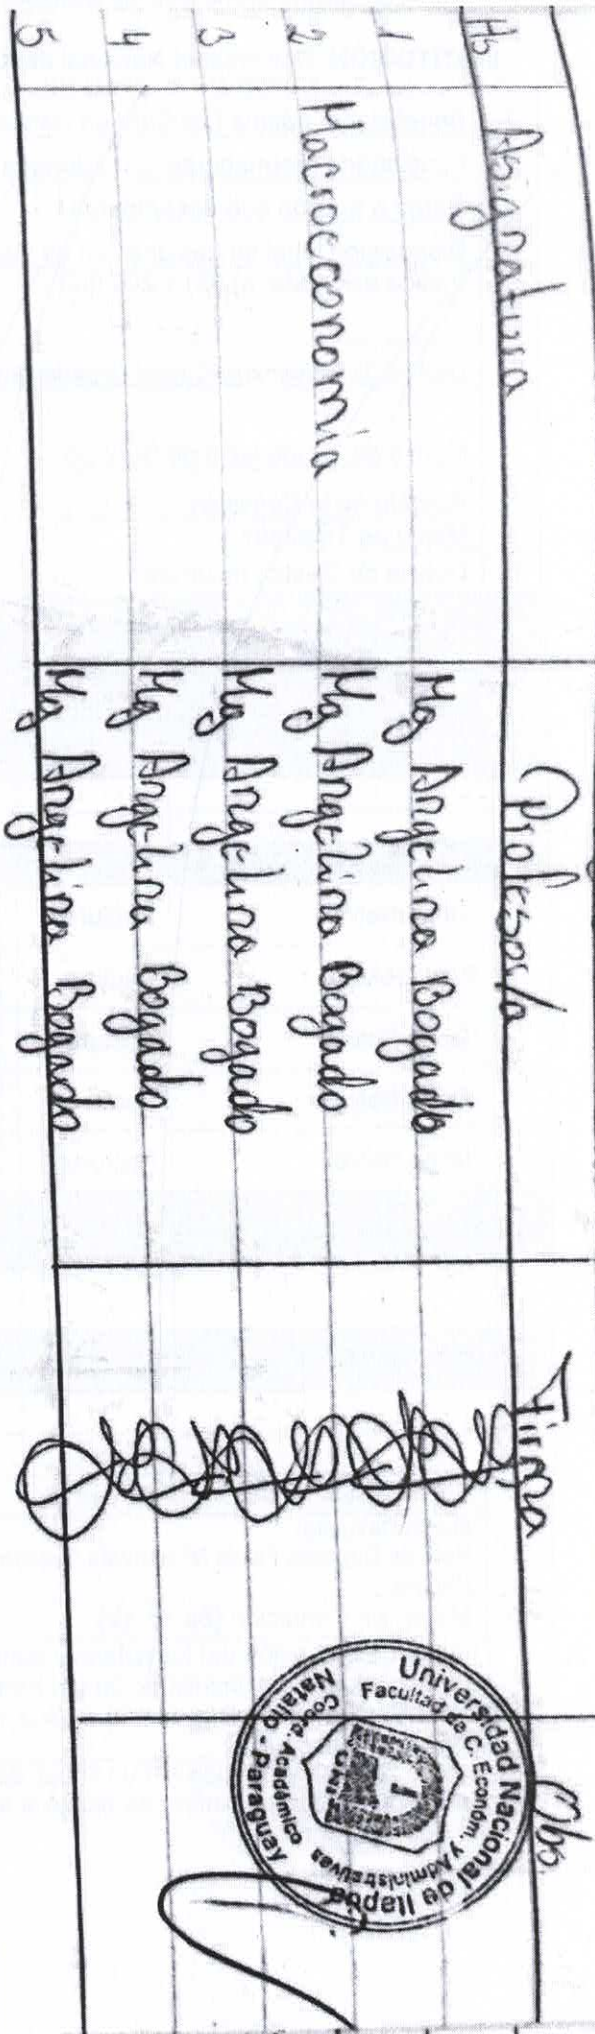 Hs Asignatura Profesor/a Firma Obs.
1 Mg Angelina Bogado
2 Macroeconomia Mg Angelina Bogado
3 Mg Angelina Bogado
4 Mg Angelina Bogado
5 Mg Angelina Bogado
Universidad Nacional de Itapúa
Facultad de C. Económ. y Administrativas
Coord. Académico
Natalio - Paraguay